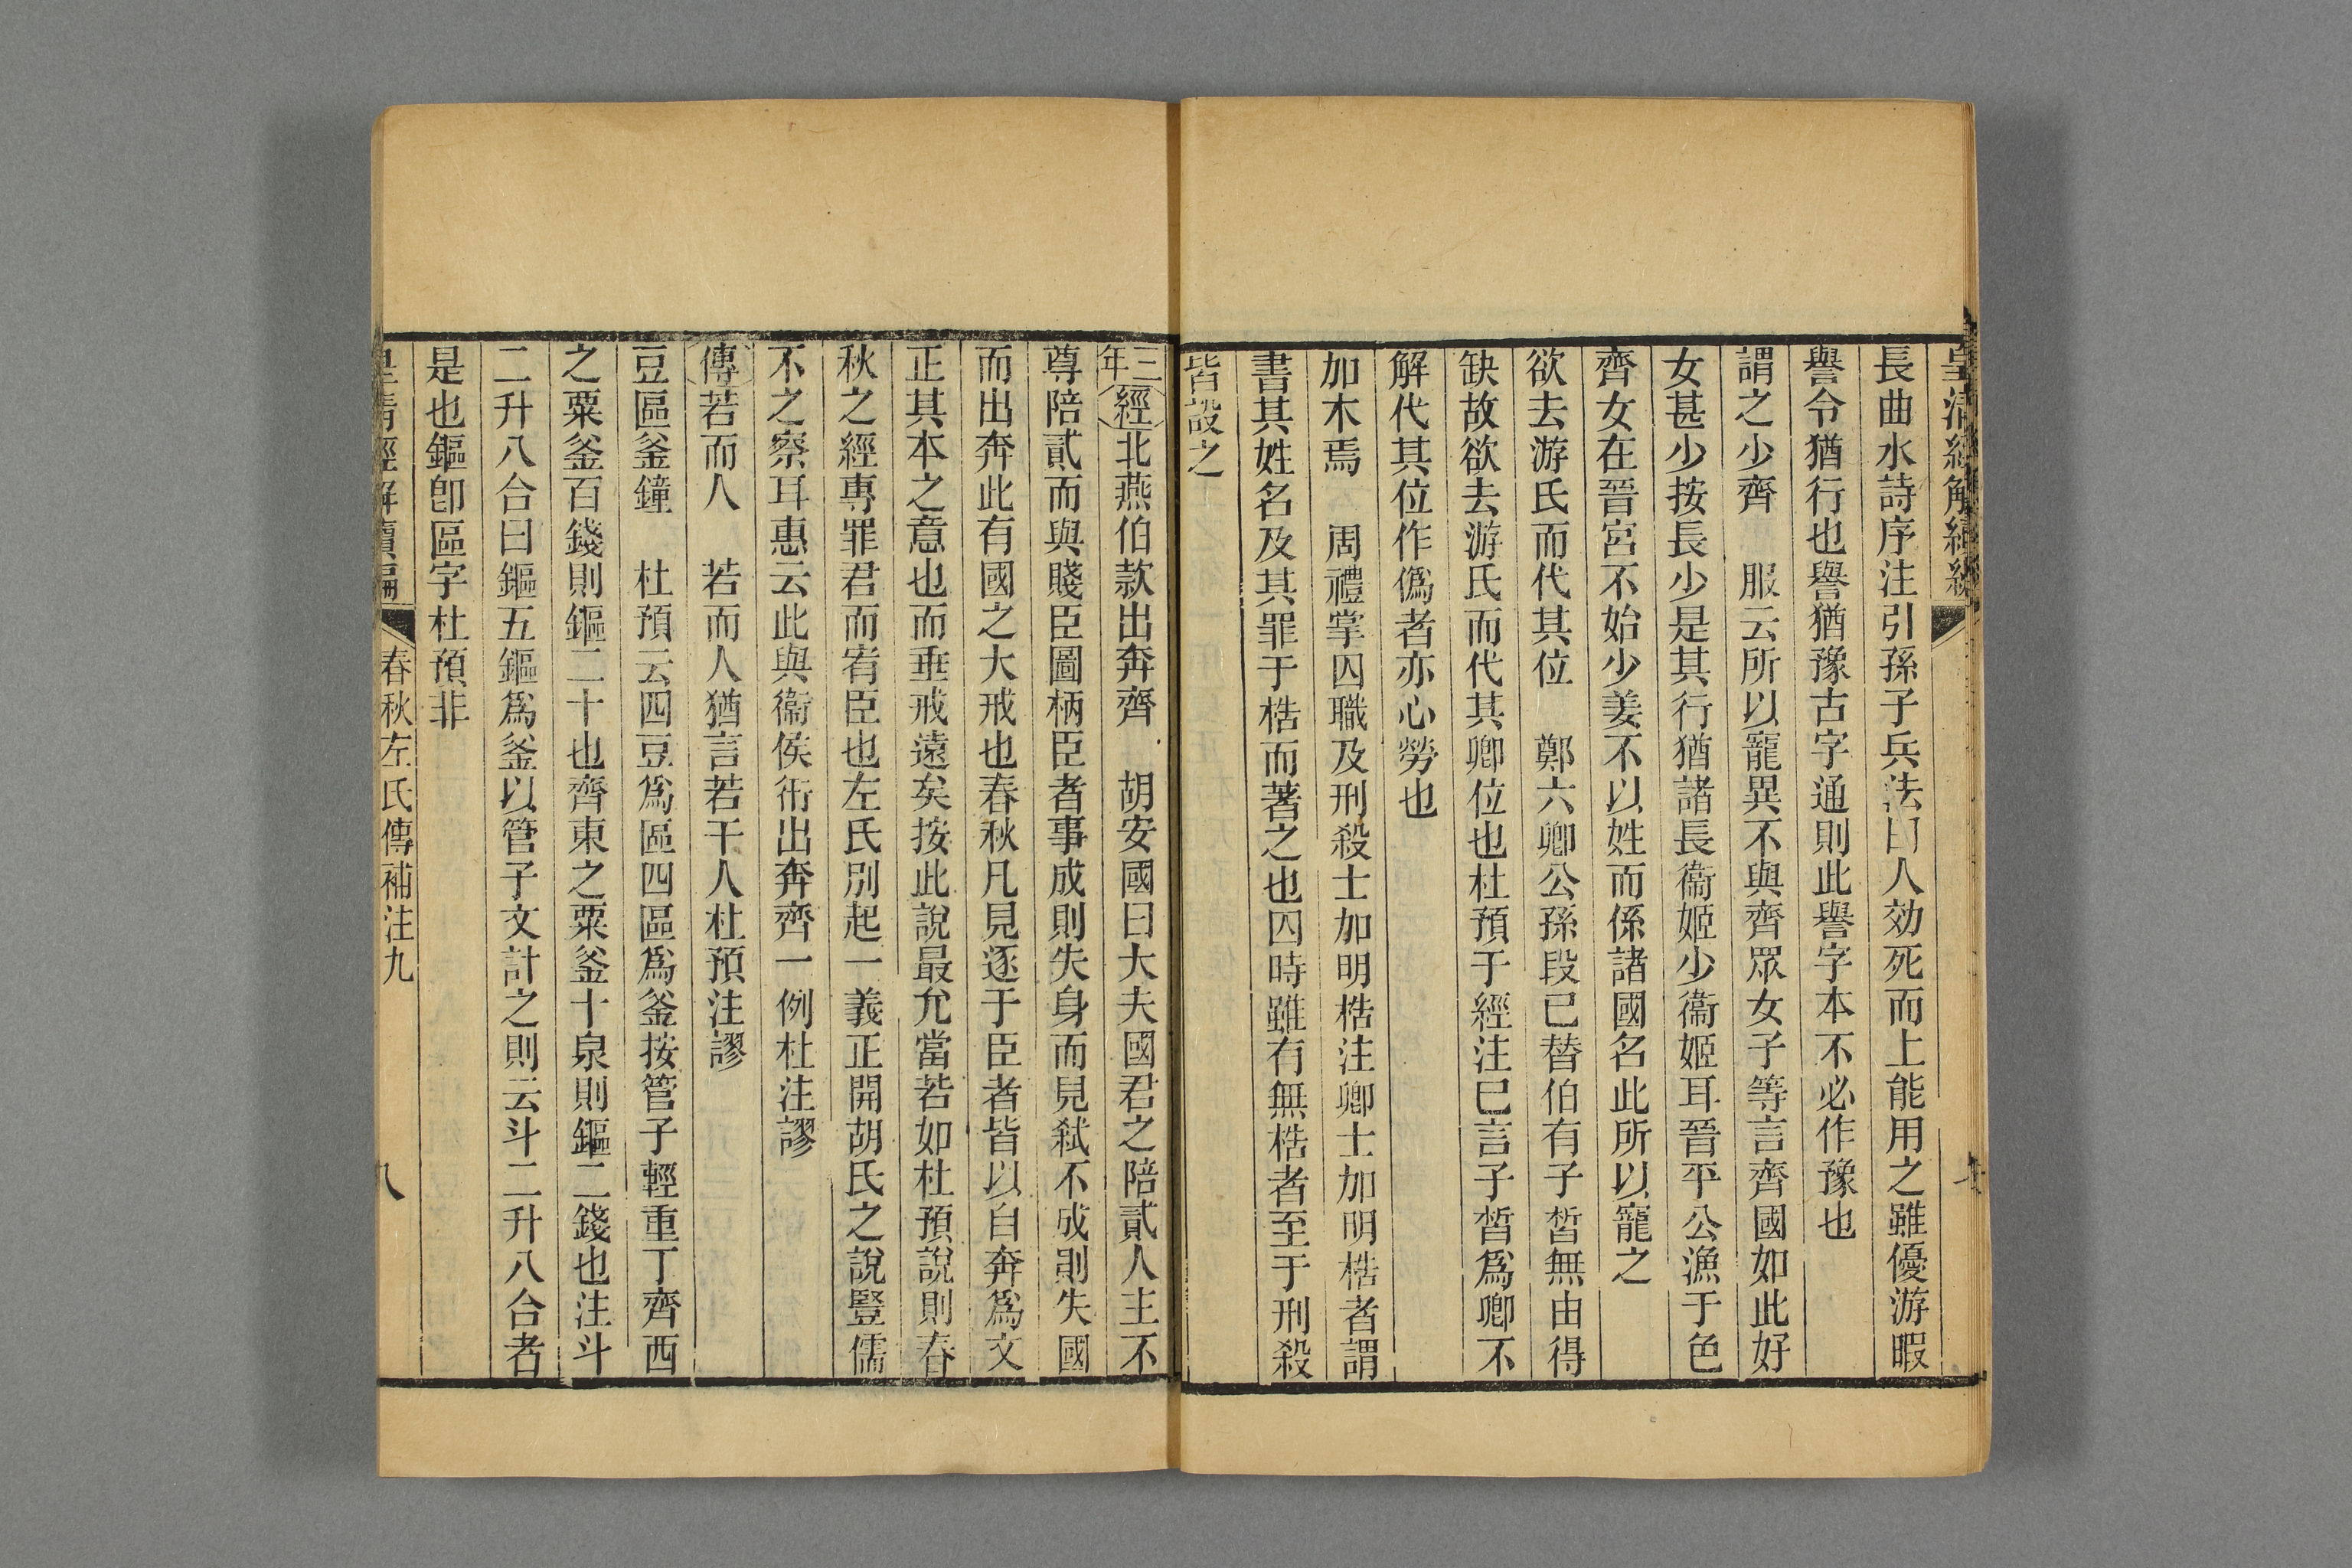 皇清經解續編
長曲水詩序注引孫子兵法曰人効死而上能用之雖優游暇
譽令猶行也譽猶豫古字通則此譽字本不必作豫也
謂之少齊　服云所以寵異不與齊眾女子等言齊國如此好
女甚少按長少是其行猶諸長衞姬少衞姬耳晉平公漁于色
齊女在晉宮不始少姜不以姓而係諸國名此所以寵之
欲去游氏而代其位　鄭六卿公孫段已替伯有子晳無由得
缺故欲去游氏而代其卿位也杜預于經注已言子晳爲卿不
解代其位作僞者亦心勞也
加木焉　周禮掌囚職及刑殺士加明梏注鄉士加明梏者謂
書其姓名及其罪于梏而著之也囚時雖有無梏者至于刑殺
皆設之
三年經北燕伯款出奔齊　胡安國曰大夫國君之陪貳人主不
尊陪貳而與賤臣圖柄臣者事成則失身而見弑不成則失國
而出奔此有國之大戒也春秋凡見逐于臣者皆以自奔爲文
正其本之意也而垂戒遠矣按此說最允當若如杜預說則春
秋之經專罪君而宥臣也左氏別起一義正開胡氏之說豎儒
不之察耳惠云此與衞侯衎出奔齊一例杜注謬
傳若而人　若而人猶言若干人杜預注謬
豆區釜鐘　杜預云四豆爲區四區爲釜按管子輕重丁齊西
之粟釜百錢則鏂二十也齊東之粟釜十泉則鏂二錢也注斗
二升八合曰鏂五鏂爲釜以管子文計之則云斗二升八合者
是也鏂卽區字杜預非
皇清經解續編　春秋左氏傳補注九　八